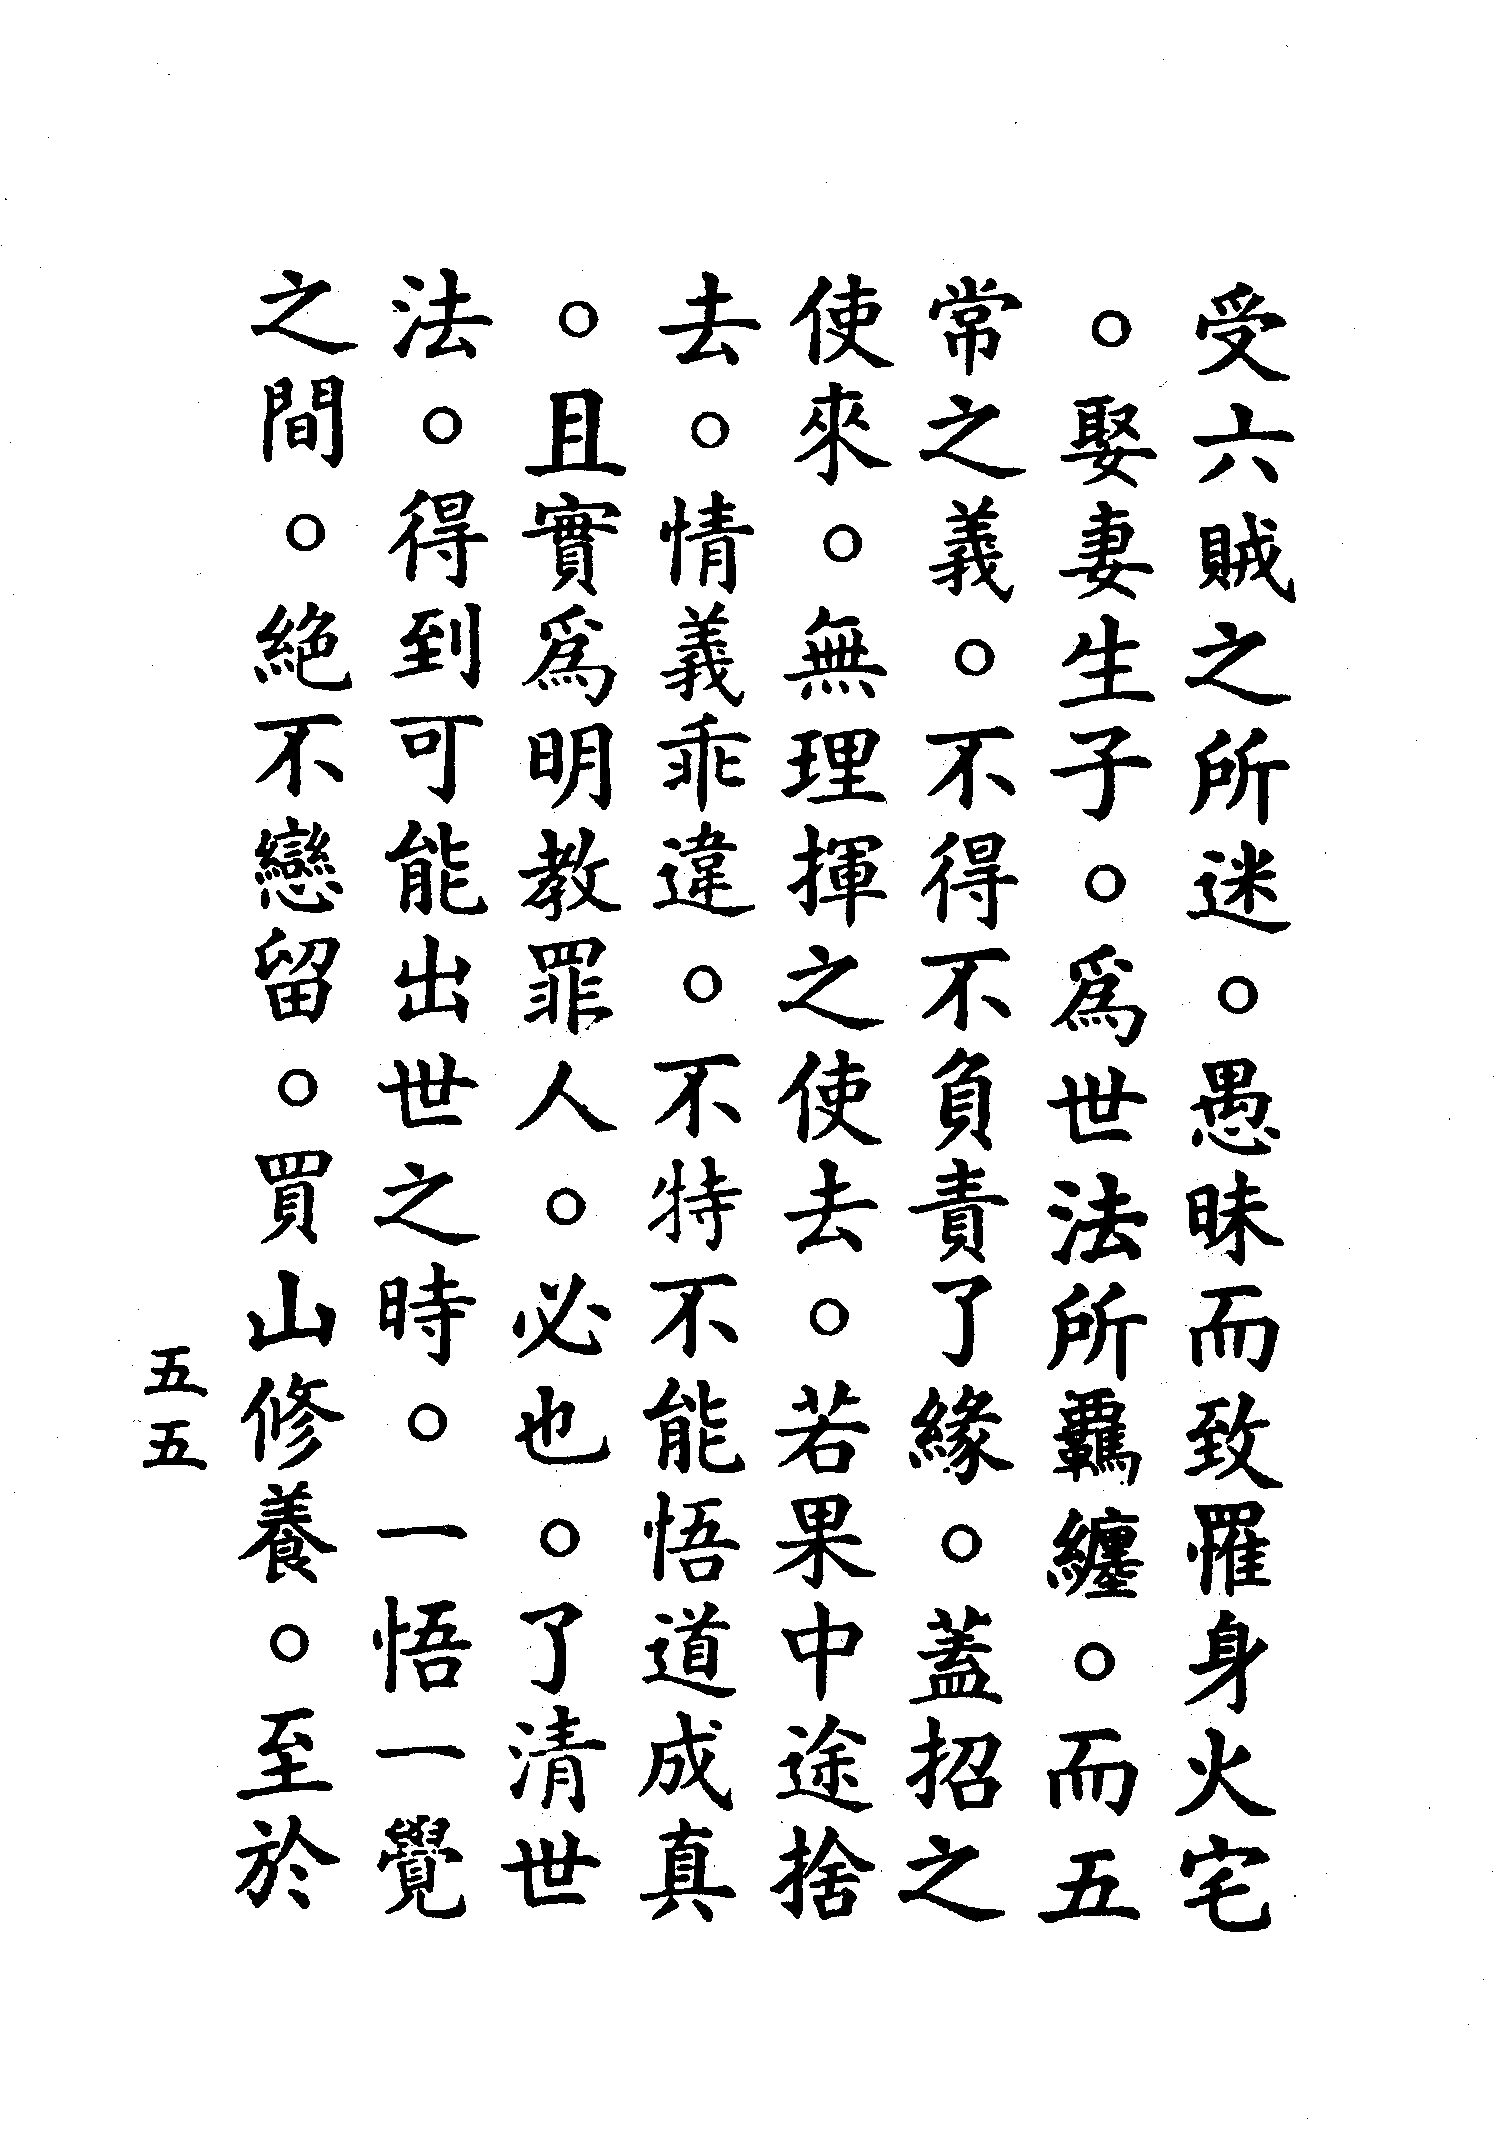 受六賊之所迷。愚昧而致罹身火宅
。娶妻生子。爲世法所羈纏。而五
常之義。不得不負責了緣。蓋招之
使來。無理揮之使去。若果中途捨
去。情義乖違。不特不能悟道成真
。且實爲明教罪人。必也。了清世
法。得到可能出世之時。一悟一覺
之間。絕不戀留。買山修養。至於
五五